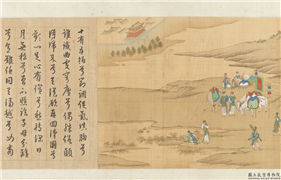 十有五拍兮節調促氣填胸兮
誰識曲處穹廬兮偶殊俗願
得歸來兮天從欲再還漢國兮
歡心足心有懷兮愁轉深日
月無私兮曾不照臨子母分離
兮意難任同天隔越兮如商
國立故宮博物院